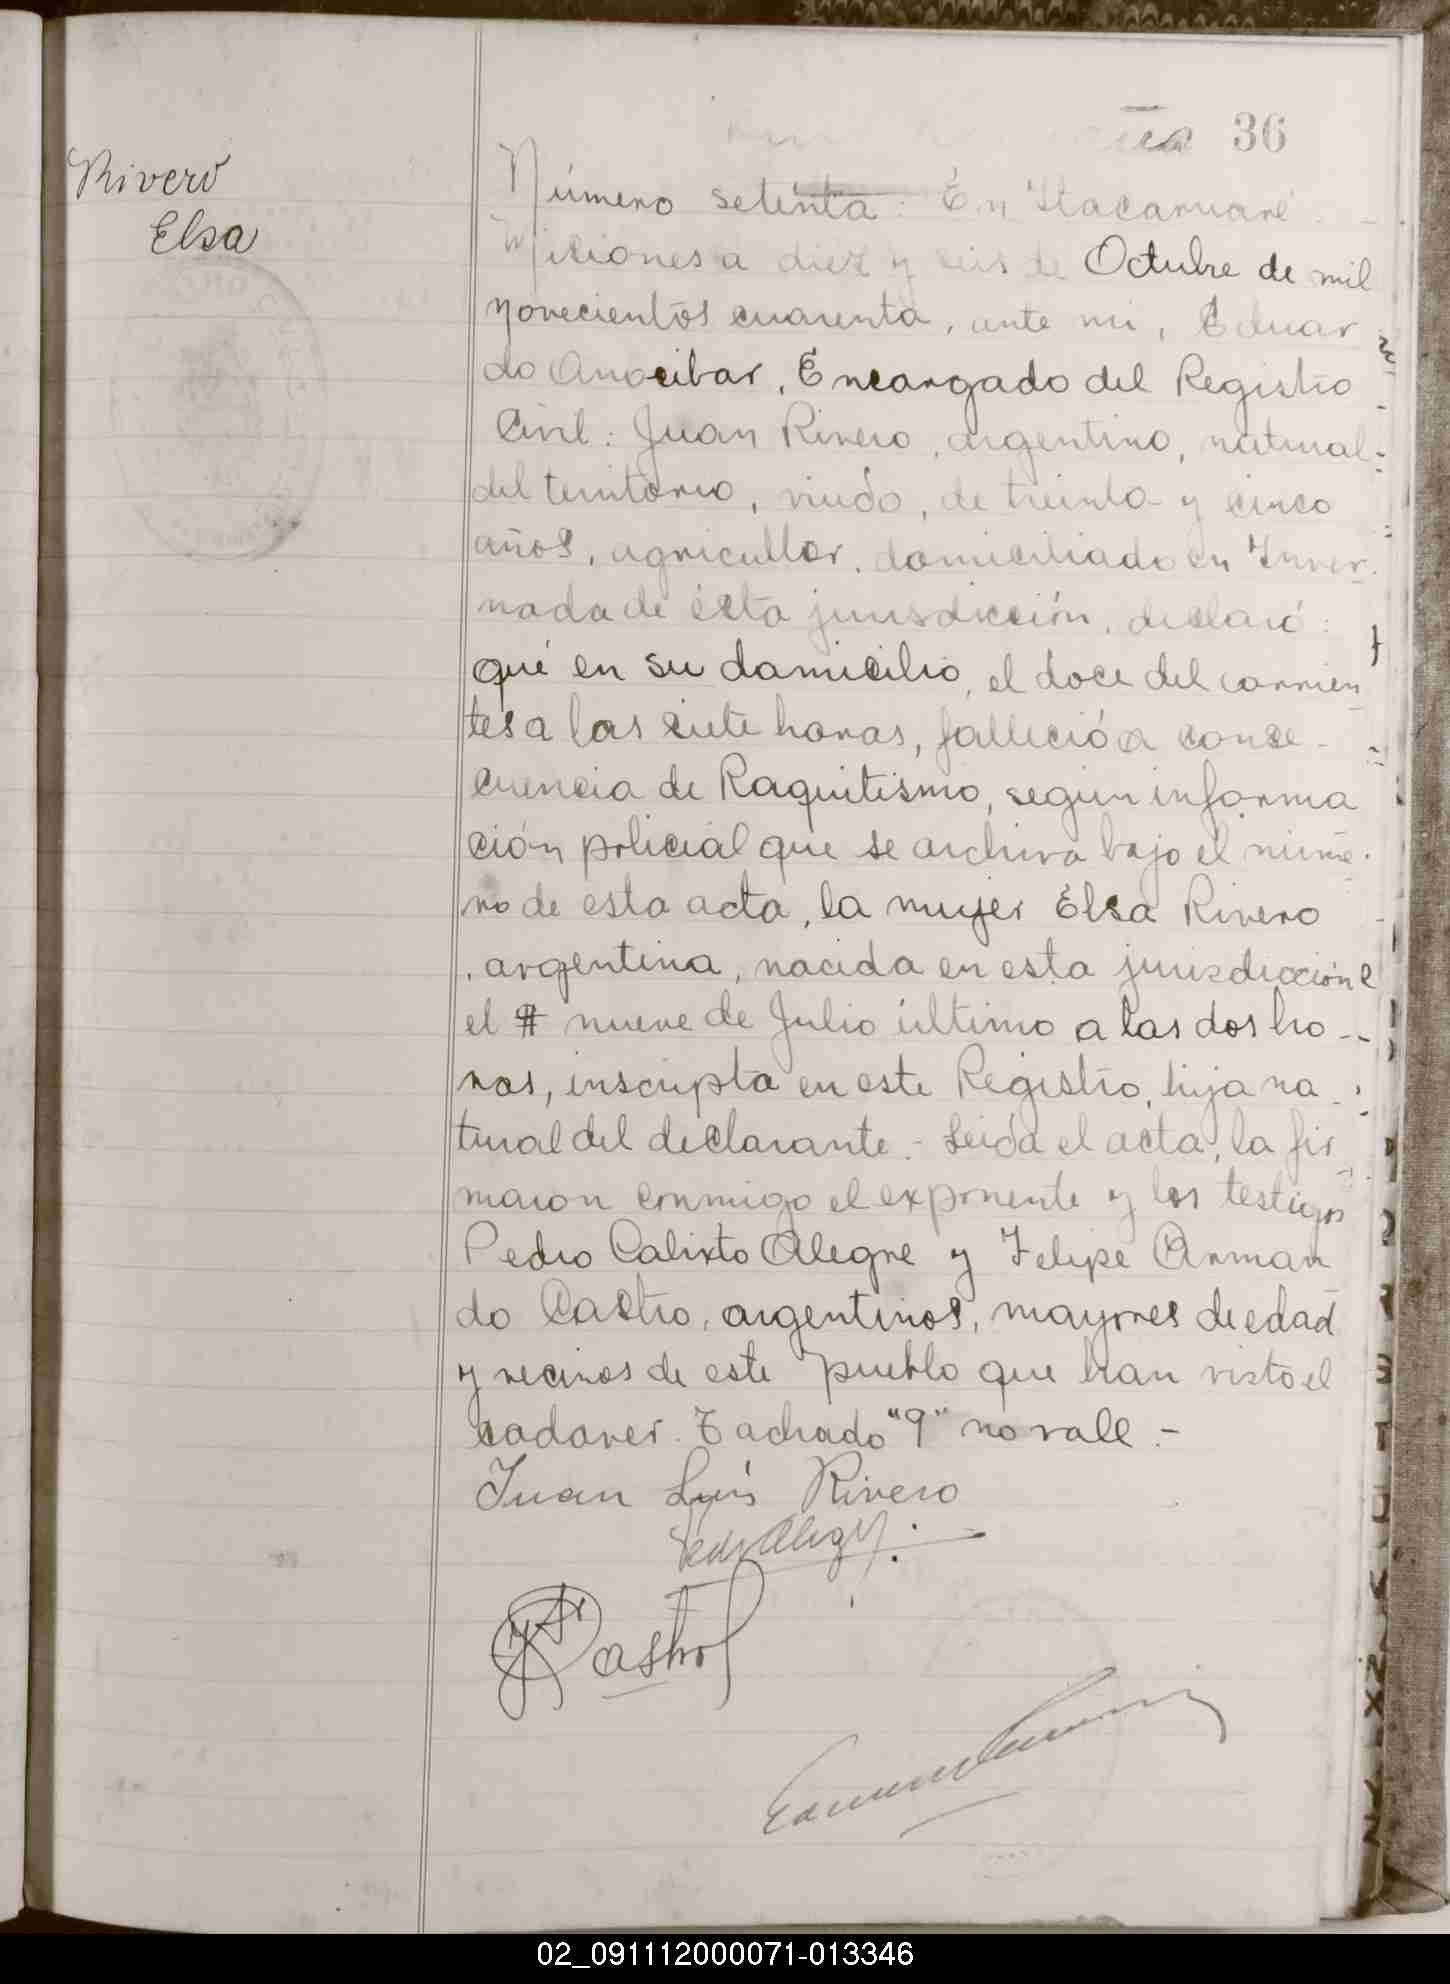 36
Rivero
Elsa
Número setenta. En Itacaruaré.
Misiones a diez y seis de Octubre de mil
novecientos cuarenta, ante mi, Eduar
do Anocibar, Encargado del Registro
Civil: Juan Rivero, argentino, natural
del territorio, viudo, de treinta y cinco
años, agricultor, domiciliado en Inver
nada de ésta jurisdicción, declaró:
qué en su domicilio, el doce del corrien
tes a las siete horas, falleció a conse-
cuencia de Raquitismo, según informa
ción policial que se archiva bajo el núme
ro de esta acta, la mujer Elsa Rivero
, argentina, nacida en esta jurisdicción
el nueve de Julio último a las dos ho-
ras, inscripta en este Registro, hija na-
tural del declarante.- Leida el acta, la fir
maron conmigo el exponente y los testigos
Pedro Calixto Alegre y Felipe Arman
do Castro, argentinos, mayores de edad
y vecinos de este pueblo que han visto el
cadaver. Tachado "9" no vale.-
Juan Luis Rivero
Castro
02_091112000071-013346